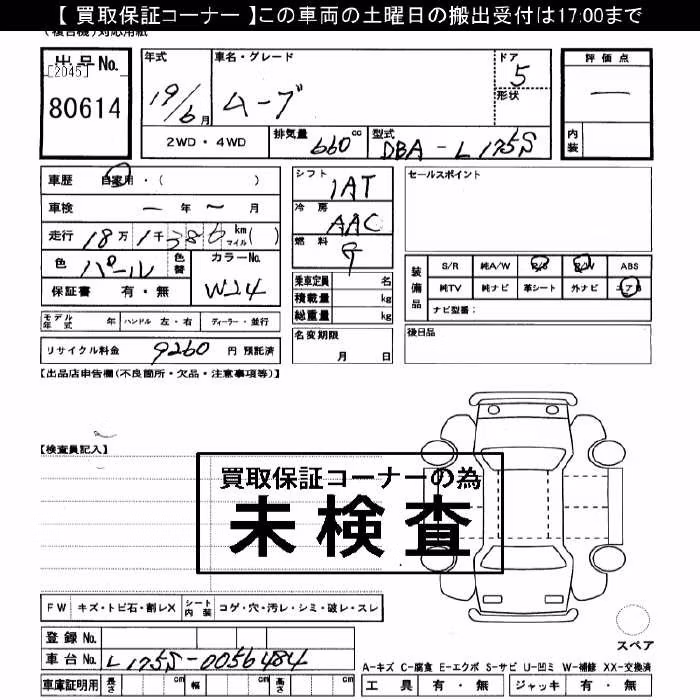 【 買取保証コーナー 】この車両の土曜日の搬出受付は17:00まで
(複合機)対応用紙
出品No.
[2045]
80614
年式
19/6月
車名・グレード
ムーブ
ドア
5
形状
評価点
一
内装
2WD・4WD
排気量
660 cc
型式
DBA-L175S
車歴 自家用・( )
車検 一 年 〜 月
走行 18万1千386 km マイル( )
色 パール
色替
カラーNo.
W24
保証書 有・無
シフト
IAT
冷房
AAC
燃料
乗車定員 名
積載量 kg
総重量 kg
セールスポイント
装備品
S/R 純A/W P/S P/W ABS
純TV 純ナビ 革シート 外ナビ エアB
ナビ型番:
モデル年式 年 ハンドル 左・右 ディーラー・並行
リサイクル料金 9260 円 預託済
名変期限
月 日
後日品
【出品店申告欄(不良箇所・欠品・注意事項等)】
【検査員記入】
買取保証コーナーの為
未検査
FW キズ・トビ石・割レX シート内装 コゲ・穴・汚レ・シミ・破レ・スレ
登録No.
車台No. L175S-0056484
車庫証明用 長さ cm 幅 cm 高さ cm
スペア
A-キズ C-腐食 E-エクボ S-サビ U-凹ミ W-補修 XX-交換済
工具 有・無 ジャッキ 有・無